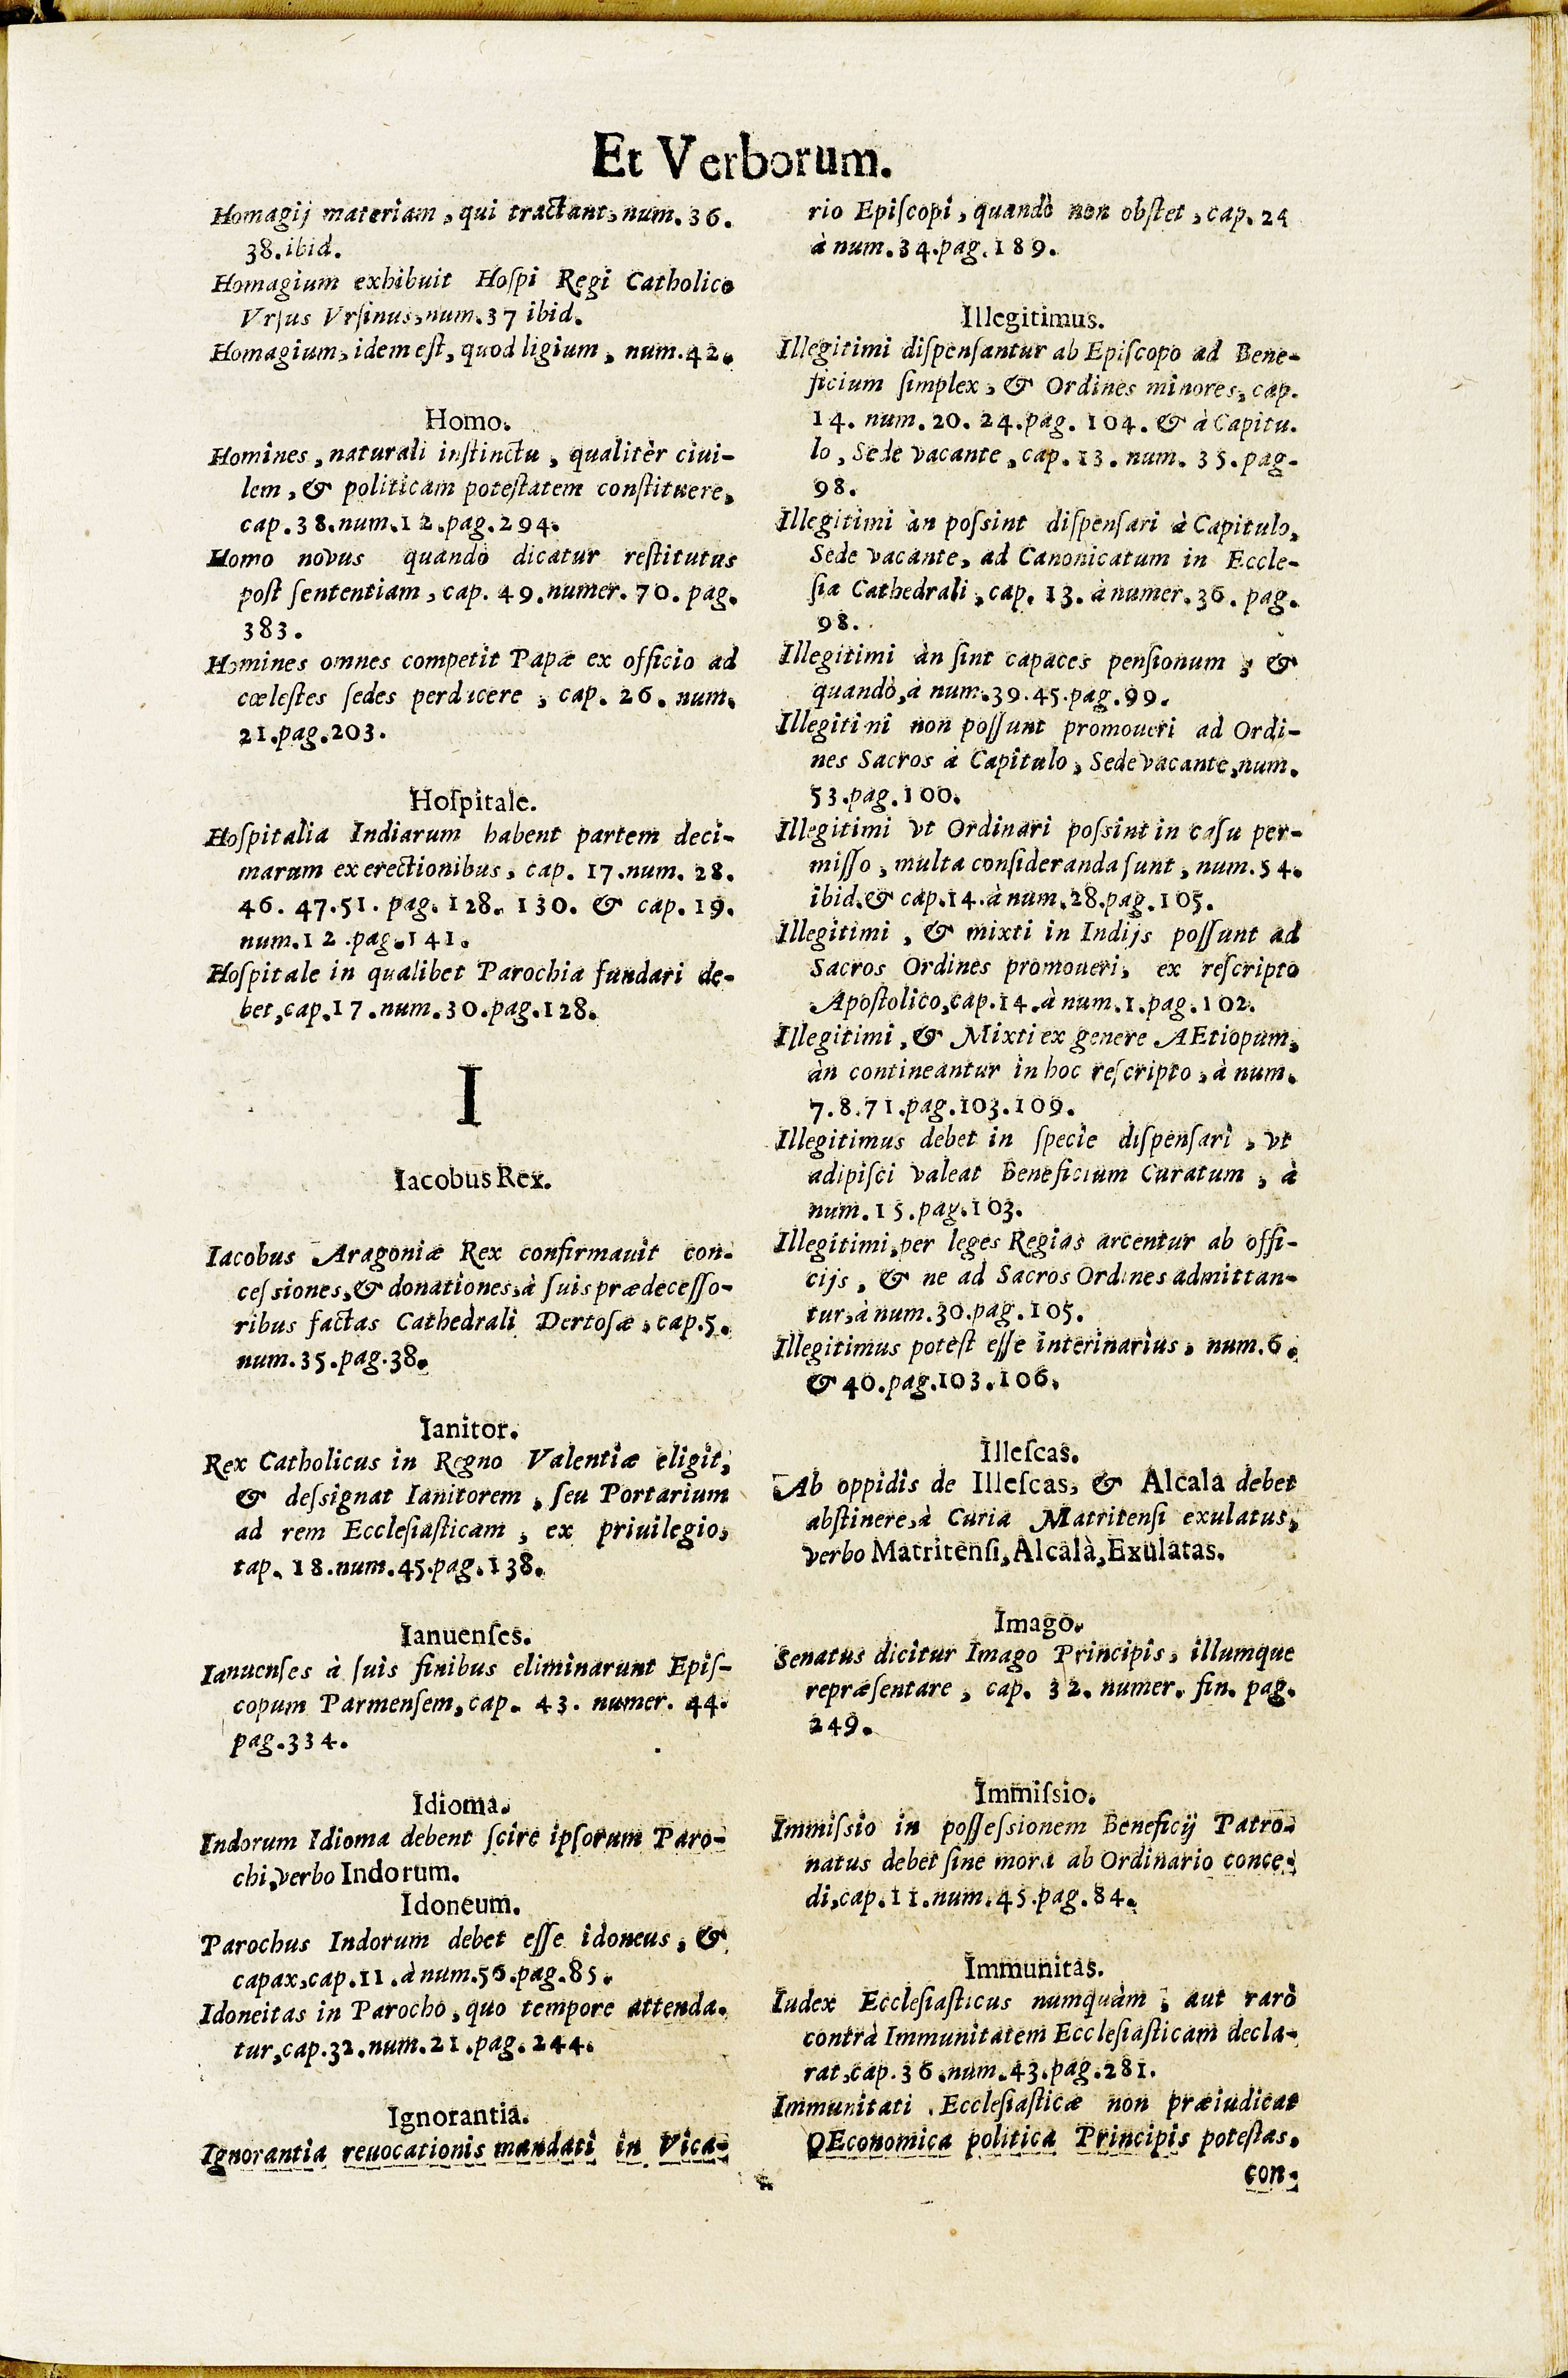 Et Verborum.
Homagij materiam, qui tractant, num. 36.
38. ibid.
Homagium exhibuit Hoſpi Regi Catholico
Vrſus Vrſinus, num. 37 ibid.
Homagium, idem eſt, quod ligium, num. 42.
Homo.
Homines, naturali inſtinctu, qualitèr ciui-
lem, & politicam poteſtatem conſtituere,
cap. 38. num. 12. pag. 294.
Homo novus quandò dicatur reſtitutus
poſt ſententiam, cap. 49. numer. 70. pag.
383.
Homines omnes competit Papæ ex officio ad
cœleſtes ſedes perducere, cap. 26. num.
21. pag. 203.
Hoſpitale.
Hoſpitalia Indiarum habent partem deci-
marum ex erectionibus, cap. 17. num. 28.
46. 47. 51. pag. 128. 130. & cap. 19.
num. 12. pag. 141.
Hoſpitale in qualibet Parochia fundari de-
bet, cap. 17. num. 30. pag. 128.
I
Iacobus Rex.
Iacobus Aragoniæ Rex confirmauit con-
ceſsiones, & donationes, à ſuis prædeceſſo-
ribus factas Cathedrali Dertoſæ, cap. 5.
num. 35. pag. 38.
Ianitor.
Rex Catholicus in Regno Valentiæ eligit,
& deſsignat Ianitorem, ſeu Portarium
ad rem Eccleſiaſticam, ex priuilegio,
cap. 18. num. 45. pag. 138.
Ianuenſes.
Ianuenſes à ſuis finibus eliminarunt Epiſ-
copum Parmenſem, cap. 43. numer. 44.
pag. 334.
Idioma.
Indorum Idioma debent ſcire ipſorum Paro-
chi, verbo Indorum.
Idoneum.
Parochus Indorum debet eſſe idoneus, &
capax, cap. 11. à num. 56. pag. 85.
Idoneitas in Parocho, quo tempore attenda-
tur, cap. 32. num. 21. pag. 244.
Ignorantia.
Ignorantia reuocationis mandati in Vica-
rio Epiſcopi, quandò non obſtet, cap. 24
à num. 34. pag. 189.
Illegitimus.
Illegitimi diſpenſantur ab Epiſcopo ad Bene-
ficium ſimplex, & Ordines minores, cap.
14. num. 20. 24. pag. 104. & à Capitu-
lo, Sede vacante, cap. 13. num. 35. pag.
98.
Illegitimi àn poſsint diſpenſari à Capitulo,
Sede vacante, ad Canonicatum in Eccle-
ſia Cathedrali, cap. 13. à numer. 36. pag.
98.
Illegitimi àn ſint capaces penſionum, &
quandò, à num. 39. 45. pag. 99.
Illegitimi non poſſunt promoueri ad Ordi-
nes Sacros à Capitulo, Sede vacante, num.
53. pag. 100.
Illegitimi vt Ordinari poſsint in caſu per-
miſſo, multa conſideranda ſunt, num. 54.
ibid. & cap. 14. à num. 28. pag. 105.
Illegitimi, & mixti in Indijs poſſunt ad
Sacros Ordines promoueri, ex reſcripto
Apoſtolico, cap. 14. à num. 1. pag. 102.
Illegitimi, & Mixti ex genere AEtiopum,
àn contineantur in hoc reſcripto, à num.
7. 8. 71. pag. 103. 109.
Illegitimus debet in ſpecie diſpenſari, vt
adipiſci valeat Beneficium Curatum, à
num. 15. pag. 103.
Illegitimi, per leges Regias arcentur ab offi-
cijs, & ne ad Sacros Ordines admittan-
tur, à num. 30. pag. 105.
Illegitimus poteſt eſſe interinarius, num. 6.
& 40. pag. 103. 106.
Illeſcas.
Ab oppidis de Illeſcas, & Alcala debet
abſtinere, à Curia Matritenſi exulatus,
verbo Matritenſi, Alcalà, Exulatas.
Imago.
Senatus dicitur Imago Principis, illumque
repræſentare, cap. 32. numer. fin. pag.
249.
Immiſsio.
Immiſsio in poſſeſsionem Beneficij Patro-
natus debet ſine mora ab Ordinario conce-
di, cap. 11. num. 45. pag. 84.
Immunitas.
Iudex Eccleſiaſticus numquàm, aut rarò
contrà Immunitatem Eccleſiaſticam decla-
rat, cap. 36. num. 43. pag. 281.
Immunitati Eccleſiaſticæ non præiudicat
OEconomica politica Principis poteſtas.
con-